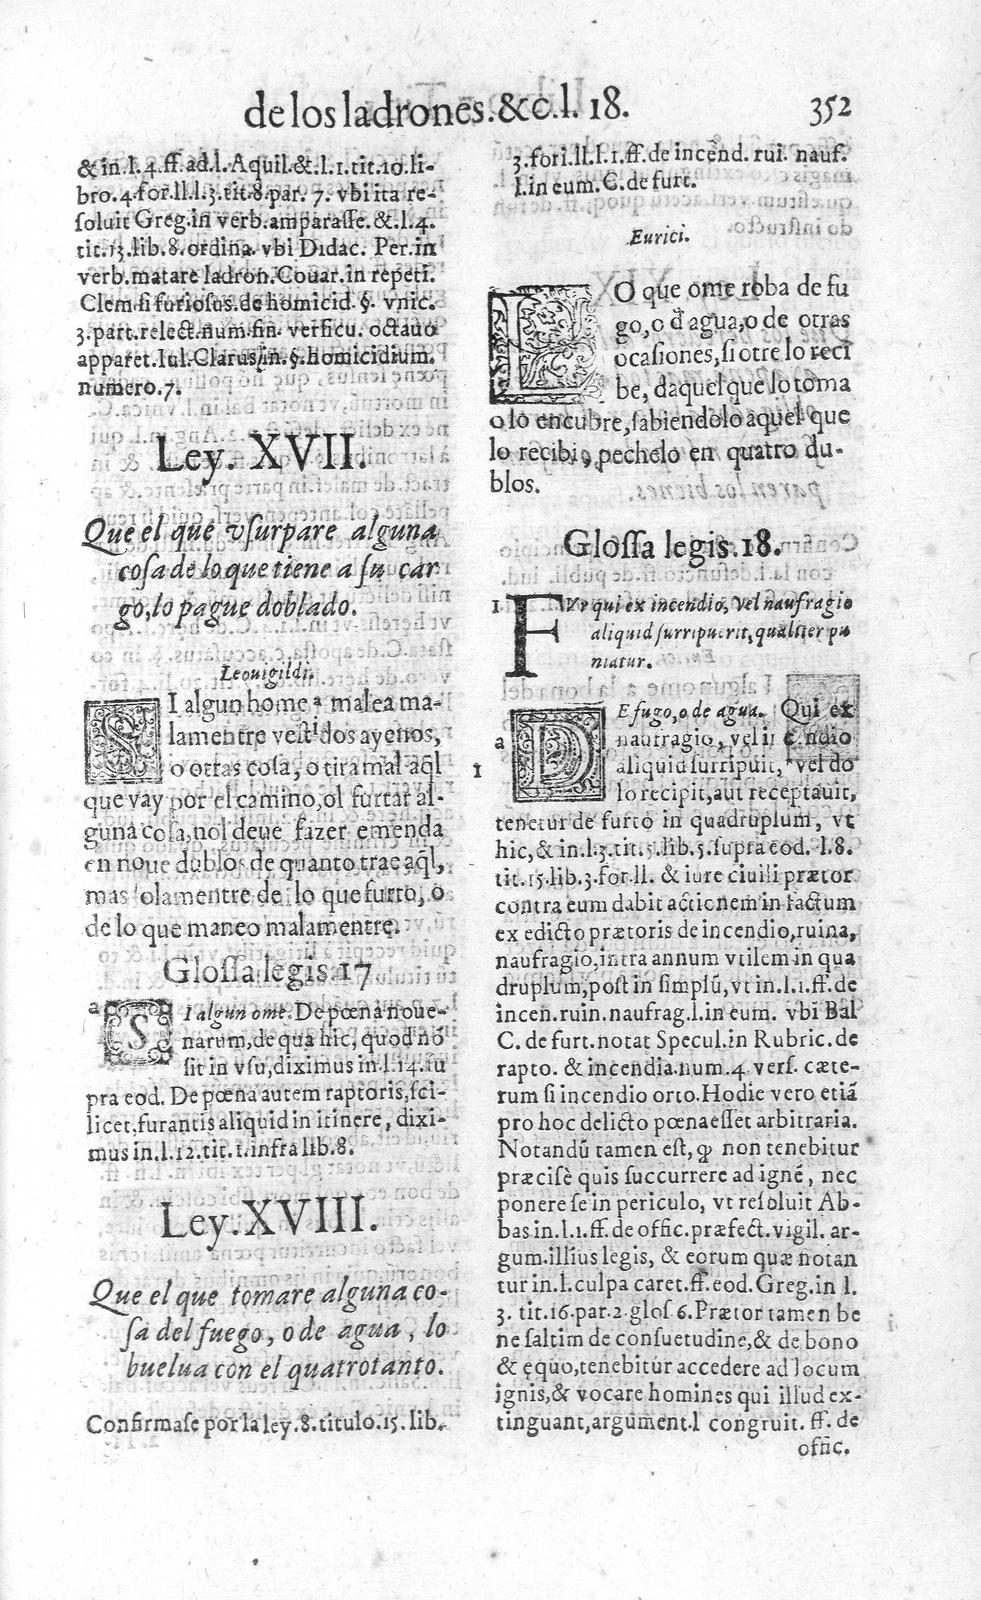 de los ladrones.&c.l. 18. 352
& in.l.4.ff.ad.l.Aquil.&.l.1.tit.10.li-
bro.4.for.ll.l.3.tit.8.par. 7. vbi ita re-
soluit Greg.in verb.amparasse.&.l.4.
tit.13.lib.8.ordina. vbi Didac. Per.in
verb.matare ladron.Couar.in repeti.
Clem si furiosus.de homicid.§. vnic.
3.part.relect.num.fin. versicu. octauo
apparet.Iul.Clarus,in.§.homicidium.
numero.7.
Ley. XVII.
Que el que vsurpare alguna
cosa de lo que tiene a su car
go,lo pague doblado.
Leouigildi.
SI algun home ª malea ma-
lamentre vestidos ayenos,
o otras cosa, o tira mal aq̃l
que vay por el camino,ol furtar al-
guna cosa,nol deue fazer emenda
en noue dublos de quanto trae aq̃l,
mas solamentre de lo que furto, o
de lo que maneo malamentre.
Glossa legis 17
a SI algun ome. De pœna noue-
narum,de qua hic, quod nõ
sit in vsu,diximus in.l.14. su
pra eod. De pœna autem raptoris,sci-
licet,furantis aliquid in itinere, dixi-
mus in.l.12.tit.1.infra lib.8.
Ley.XVIII.
Que el que tomare alguna co-
sa del fuego, o de agua, lo
buelua con el quatrotanto.
Confirmase por la ley.8.titulo.15.lib.
3.fori.ll.l.1.ff.de incend. rui. nauf.
l.in eum.C.de furt.
Eurici.
LO que ome roba de fu
go,o d̃ agua,o de otras
ocasiones,si otre lo reci
be, daquel que lo toma
o lo encubre,sabiendolo aquel que
lo recibio,pechelo en quatro du-
blos.
Glossa legis.18.
1 FVr qui ex incendio, vel naufragio
aliquid surripuerit, qualiter pu
niatur.
a DE fugo,o de agua. Qui ex
naufragio, vel incendio
1 aliquid surripuit, vel do
lo recipit,aut receptauit,
tenetur de furto in quadruplum, vt
hic,& in.l.3.tit.5.lib.5.supra eod. l.8.
tit.15.lib.3.for.ll. & iure ciuili prætor
contra eum dabit actionem in factum
ex edicto prætoris de incendio,ruina,
naufragio,intra annum vtilem in qua
druplum,post in simplũ,vt in.l.1.ff.de
incen.ruin.naufrag.l.in eum. vbi Bal
C.de furt.notat Specul.in Rubric.de
rapto. & incendia.num.4 vers. cæte-
rum si incendio orto.Hodie vero etiã
pro hoc delicto pœna esset arbitraria.
Notandũ tamen est, ꝙ non tenebitur
præcisè quis succurrere ad igné, nec
ponere se in periculo, vt resoluit Ab-
bas in.l.1.ff.de offic.præfect.vigil. ar-
gum.illius legis, & eorum quæ notan
tur in.l.culpa caret.ff.eod.Greg.in l.
3. tit.16.par.2.glos 6.Prætor tamen be
ne saltim de consuetudine,& de bono
& ęquo,tenebitur accedere ad locum
ignis,& vocare homines qui illud ex-
tinguant,argument.l congruit. ff. de
offic.